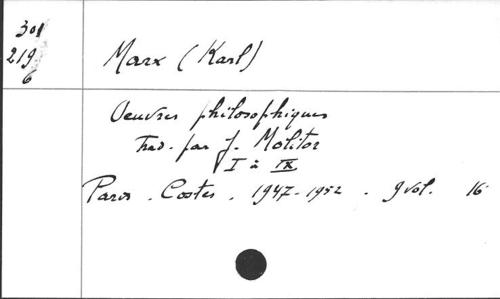 301
219
6
Marx (Karl)
Oeuvres philosophiques
Trad. par J. Molitor
I à IX
Paris. Costes. 1947-1952. 9 vol. 16